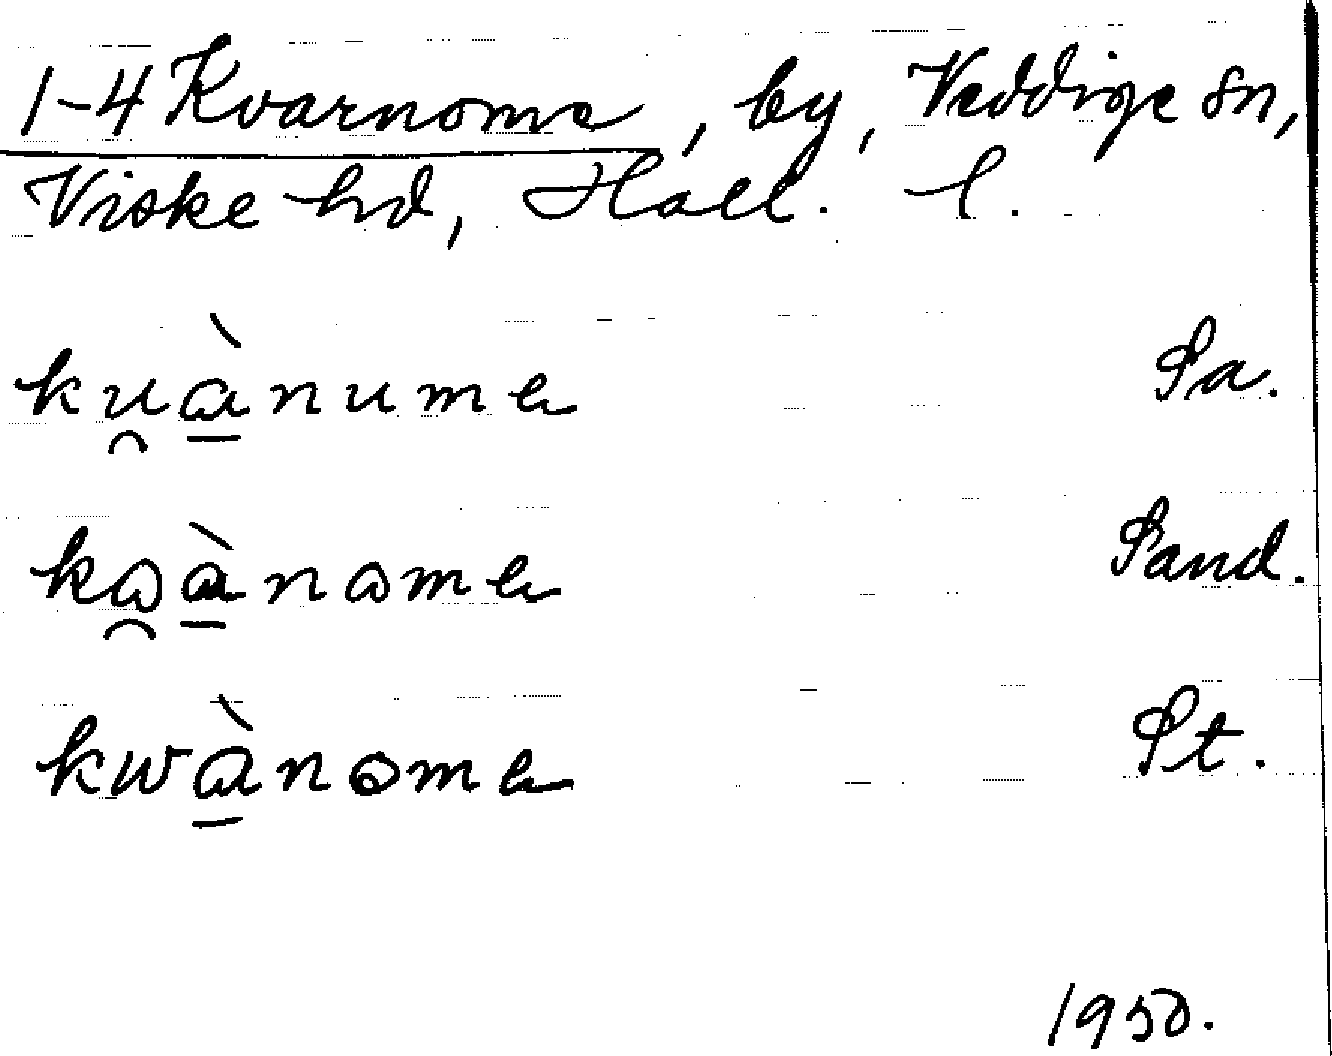 1-4 Kvarnome, by, Veddige sn,
Viske hd, Hall. l.
ku̯à̱numɐ Sa.
kɷ̯à̱nɷmɐ Sand.
kwà̱nomɐ St.
1950.